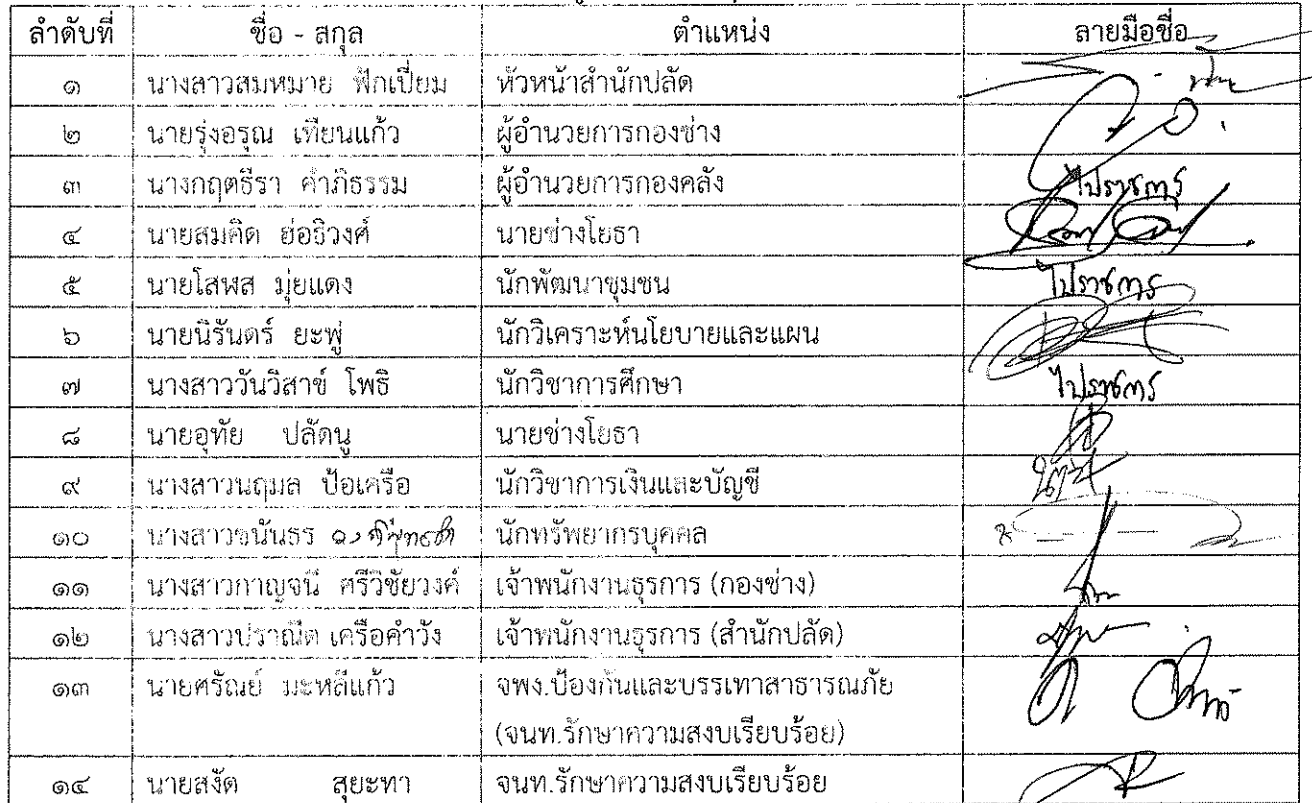 ลำดับที่ ชื่อ - สกุล ตำแหน่ง ลายมือชื่อ
๑ นางสาวสมหมาย ฟักเปี่ยม หัวหน้าสำนักปลัด
๒ นายรุ่งอรุณ เทียนแก้ว ผู้อำนวยการกองช่าง
๓ นางกฤตธีรา คำภิธรรม ผู้อำนวยการกองคลัง ไปราชการ
๔ นายสมคิด ฮ่อธิวงศ์ นายช่างโยธา
๕ นายโสฬส มุ่ยแดง นักพัฒนาชุมชน ไปราชการ
๖ นายนิรันดร์ ยะพู่ นักวิเคราะห์นโยบายและแผน
๗ นางสาววันวิสาข์ โพธิ นักวิชาการศึกษา ไปราชการ
๘ นายอุทัย ปลัดนู นายช่างโยธา
๙ นางสาวนฤมล ป้อเครือ นักวิชาการเงินและบัญชี
๑๐ นางสาวชนันธร นักทรัพยากรบุคคล
๑๑ นางสาวกาญจนี ศรีวิชัยวงค์ เจ้าพนักงานธุรการ (กองช่าง)
๑๒ นางสาวปราณีต เครือคำวัง เจ้าพนักงานธุรการ (สำนักปลัด)
๑๓ นายศรัณย์ มะหลีแก้ว จพง.ป้องกันและบรรเทาสาธารณภัย
(จนท.รักษาความสงบเรียบร้อย)
๑๔ นายสงัด สุยะทา จนท.รักษาความสงบเรียบร้อย